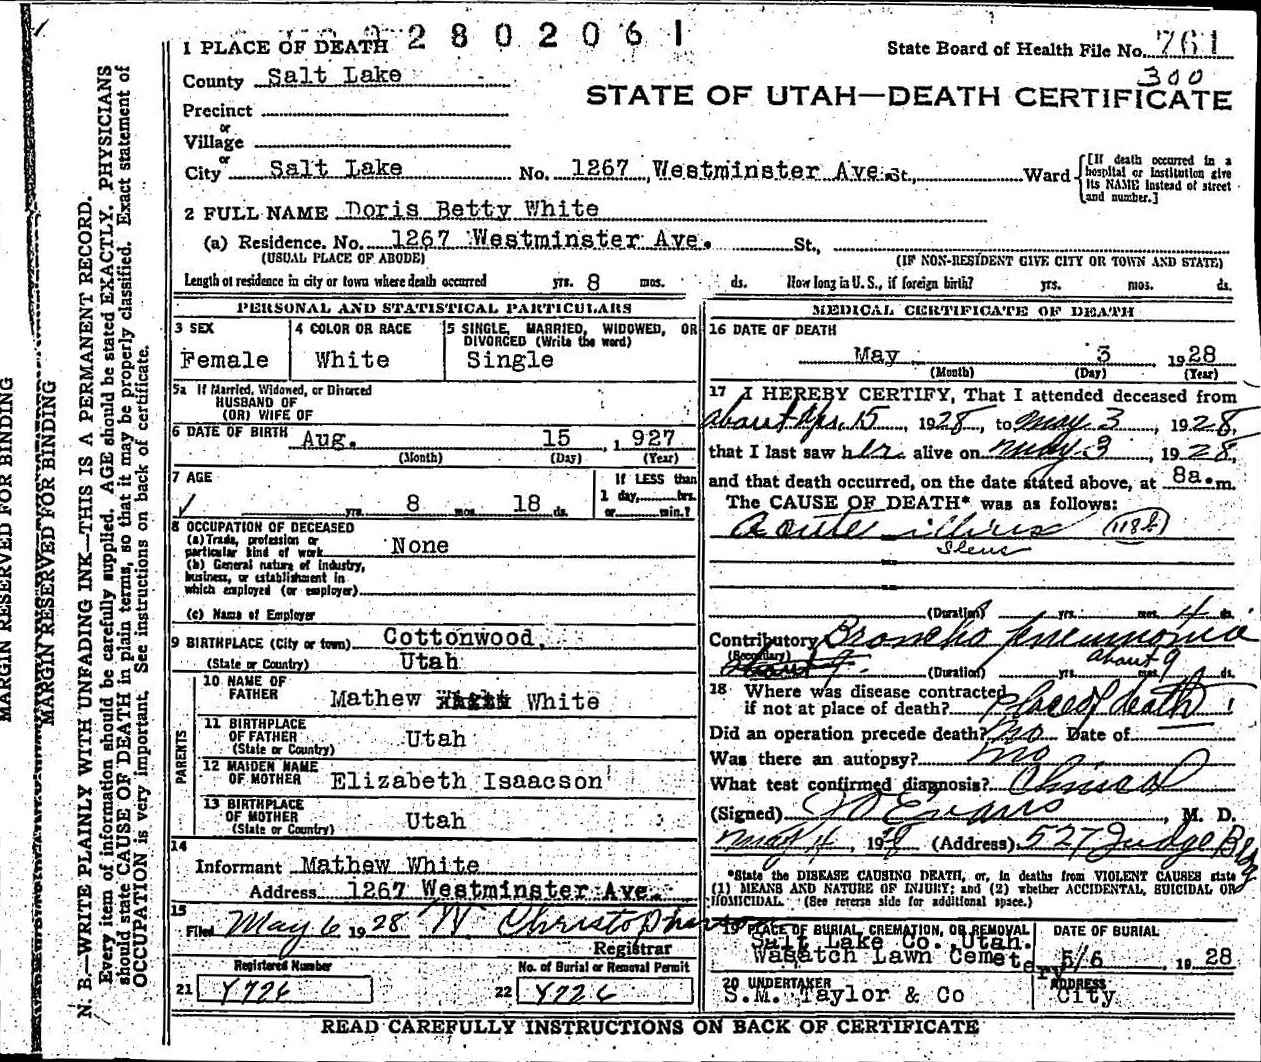 2802061
1 PLACE OF DEATH
State Board of Health File No. 761
300
County Salt Lake
STATE OF UTAH—DEATH CERTIFICATE
Precinct
or
Village
or
City Salt Lake No. 1267 Westminster Ave. St., Ward [If death occurred in a hospital or institution give its NAME instead of street and number.]
2 FULL NAME Doris Betty White
(a) Residence. No. 1267 Westminster Ave. St.,
(USUAL PLACE OF ABODE) (IF NON-RESIDENT GIVE CITY OR TOWN AND STATE)
Length of residence in city or town where death occurred yrs. 8 mos. ds. How long in U. S., if foreign birth? yrs. mos. ds.
PERSONAL AND STATISTICAL PARTICULARS
3 SEX
Female
4 COLOR OR RACE
White
5 SINGLE, MARRIED, WIDOWED, OR
DIVORCED (Write the word)
Single
5a If Married, Widowed, or Divorced
HUSBAND OF
(OR) WIFE OF
6 DATE OF BIRTH Aug. 15, 1927
(Month) (Day) (Year)
7 AGE
yrs. 8 mos. 18 ds.
If LESS than
1 day, hrs.
or min.?
8 OCCUPATION OF DECEASED
(a) Trade, profession or
particular kind of work None
(b) General nature of industry,
business, or establishment in
which employed (or employer)
(c) Name of Employer
9 BIRTHPLACE (City or town) Cottonwood,
(State or Country) Utah
PARENTS
10 NAME OF
FATHER Mathew White
11 BIRTHPLACE
OF FATHER
(State or Country) Utah
12 MAIDEN NAME
OF MOTHER Elizabeth Isaacson
13 BIRTHPLACE
OF MOTHER
(State or Country) Utah
14
Informant Mathew White
Address 1267 Westminster Ave.
15
Filed May 6 1928
Registrar
Registered Number
21
No. of Burial or Removal Permit
22
MEDICAL CERTIFICATE OF DEATH
16 DATE OF DEATH
May 3 1928
(Month) (Day) (Year)
17 I HEREBY CERTIFY, That I attended deceased from
about Apr. 15, 1928, to May 3, 1928,
that I last saw her alive on May 3, 1928,
and that death occurred, on the date stated above, at 8a.m.
The CAUSE OF DEATH* was as follows:
Acute
Ileus
(Duration) yrs. mos. 4 ds.
Contributory Broncho pneumonia
(Secondary)
about 9
(Duration) yrs. mos. ds.
18 Where was disease contracted
if not at place of death? place of death
Did an operation precede death? no Date of
Was there an autopsy? no
What test confirmed diagnosis? Clinical
(Signed) Evans, M. D.
May 4, 19 (Address) 527 Judge Bldg
*State the DISEASE CAUSING DEATH, or, in deaths from VIOLENT CAUSES state
(1) MEANS AND NATURE OF INJURY; and (2) whether ACCIDENTAL, SUICIDAL OR
HOMICIDAL. (See reverse side for additional space.)
19 PLACE OF BURIAL, CREMATION, OR REMOVAL
Salt Lake Co., Utah.
Wasatch Lawn Cemetery
DATE OF BURIAL
5/6, 1928
20 UNDERTAKER
S.M. Taylor & Co
ADDRESS
City
READ CAREFULLY INSTRUCTIONS ON BACK OF CERTIFICATE
MARGIN RESERVED FOR BINDING
MARGIN RESERVED FOR BINDING
N. B.—WRITE PLAINLY WITH UNFADING INK—THIS IS A PERMANENT RECORD.
Every item of information should be carefully supplied. AGE should be stated EXACTLY. PHYSICIANS
should state CAUSE OF DEATH in plain terms, so that it may be properly classified. Exact statement of
OCCUPATION is very important. See instructions on back of certificate.